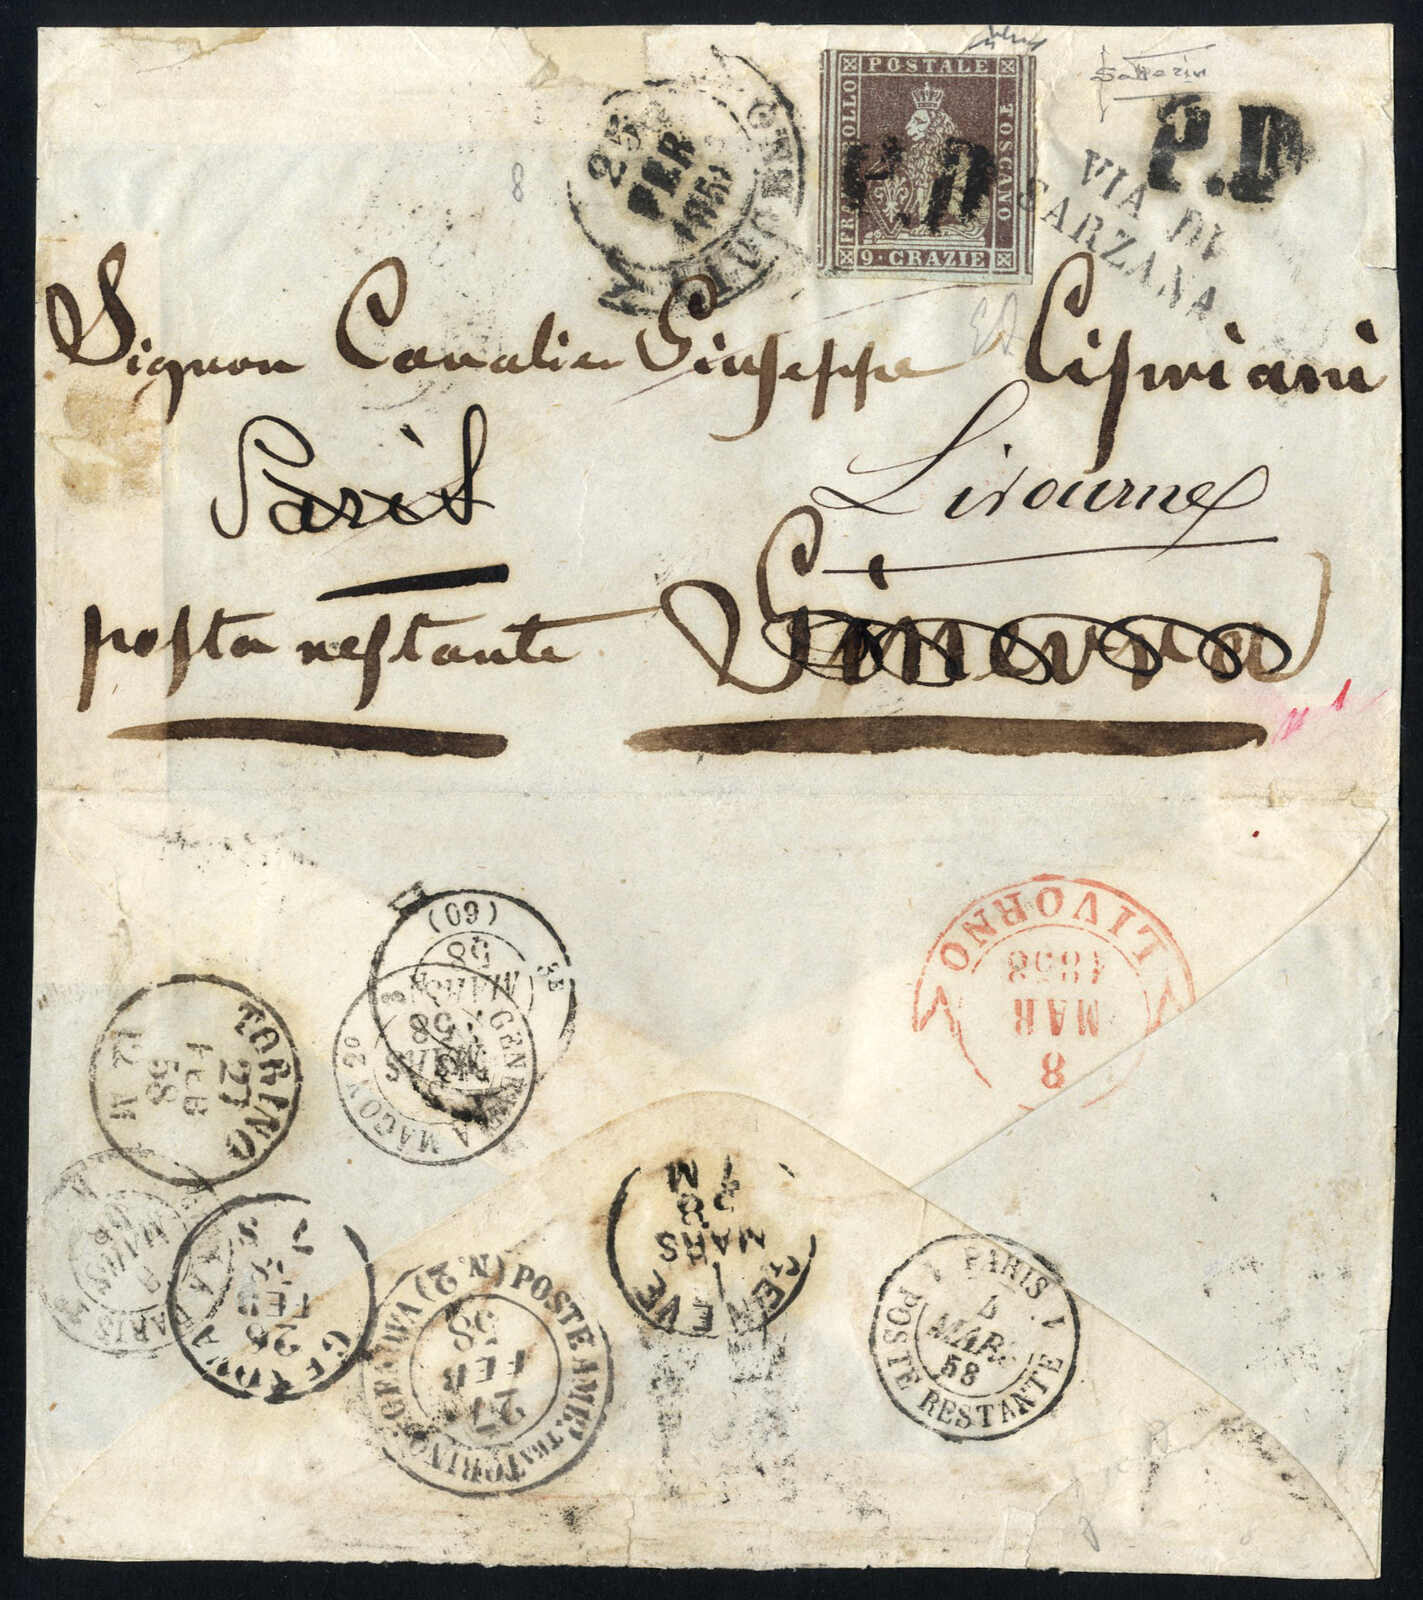 8
25
FEB
185
FRANCOBOLLO POSTALE TOSCANO
9·CRAZIE
P.D
P.D
VIA DI
SARZANA
Signor Cavalier Giuseppe Cipriani
Paris
Livourne
posta restante Ginevra
(60)
MARS
58
GENEVE A MACON 2°
MARS
58
LIVORNO
8
MAR
1858
TORINO
27
FEB
58
12 M
GENOVA
26
FEB
58
PARIS
MARS
58
POSTE AMB. TRA TORINO GENOVA (N. 2)
27
FEB
58
GENEVE
MARS
58
M
PARIS
POSTE RESTANTE
4
MARS
58